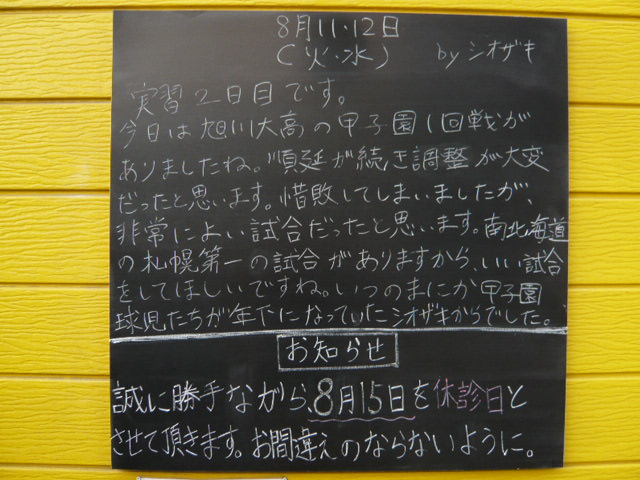 8月11・12日
(火・水) by シオザキ
実習2日目です。
今日は旭川大高の甲子園1回戦が
ありましたね。順延が続き調整が大変
だったと思います。惜敗してしまいましたが、
非常によい試合だったと思います。南北海道
の札幌第一の試合がありますから、いい試合
をしてほしいですね。いつのまにか甲子園
球児たちが年下になっていたシオザキからでした。
お知らせ
誠に勝手ながら、8月15日を休診日と
させて頂きます。お間違えのならないように。